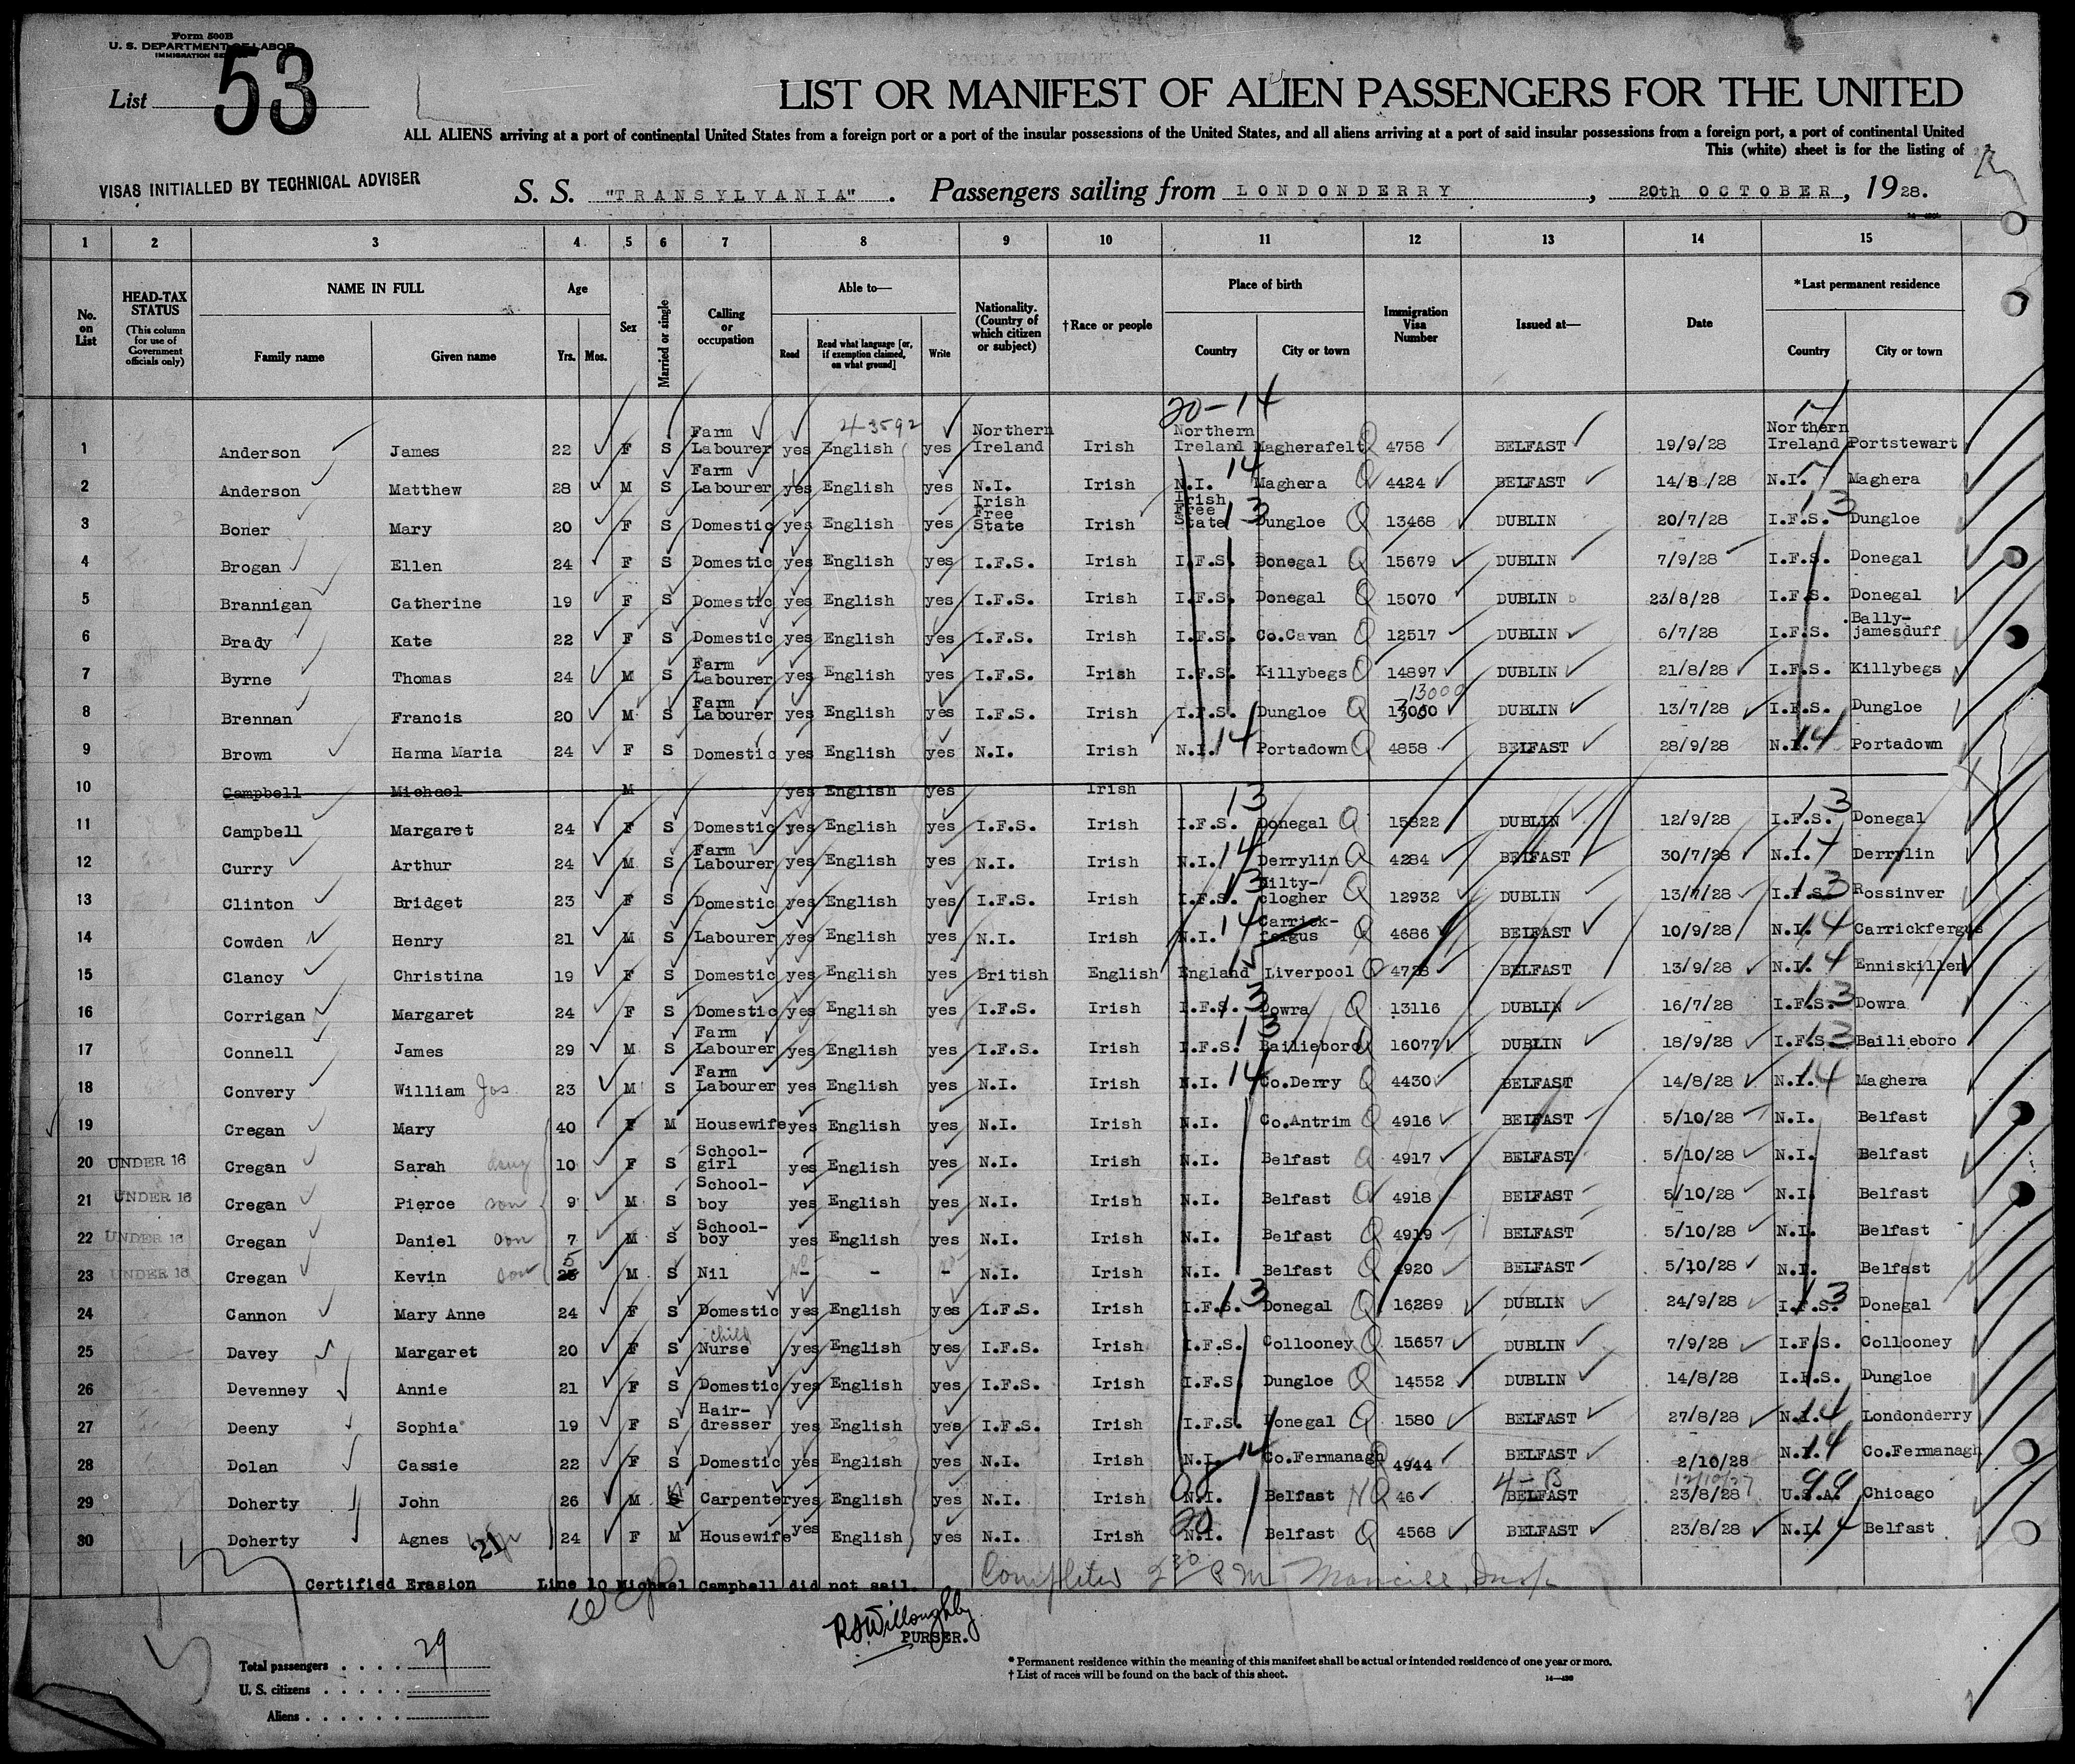 Form 500B
U. S. DEPARTMENT OF LABOR
List 53
LIST OR MANIFEST OF ALIEN PASSENGERS FOR THE UNITED
ALL ALIENS arriving at a port of continental United States from a foreign port or a port of the insular possessions of the United States, and all aliens arriving at a port of said insular possessions from a foreign port, a port of continental United
This (white) sheet is for the listing of
VISAS INITIALLED BY TECHNICAL ADVISER
S. S. "TRANSYLVANIA". Passengers sailing from LONDONDERRY, 20th OCTOBER, 1928.
1 2 3 4 5 6 7 8 9 10 11 12 13 14 15
No. on List
HEAD-TAX STATUS (This column for use of Government officials only)
NAME IN FULL
Family name Given name
Age
Yrs. Mos.
Sex
Married or single
Calling or occupation
Able to—
Read
Read what language [or, if exemption claimed, on what ground]
Write
Nationality. (Country of which citizen or subject)
† Race or people
Place of birth
Country City or town
Immigration Visa Number
Issued at—
Date
* Last permanent residence
Country City or town
20-14
1 Anderson James 22 F S Farm Labourer yes English yes Northern Ireland Irish Northern Ireland Magherafelt Q 4758 BELFAST 19/9/28 Northern Ireland Portstewart
2 Anderson Matthew 28 M S Farm Labourer yes English yes N.I. Irish N.I. 14 Maghera Q 4424 BELFAST 14/8/28 N.I. Maghera
3 Boner Mary 20 F S Domestic yes English yes Irish Free State Irish Irish Free State 13 Dungloe Q 13468 DUBLIN 20/7/28 I.F.S. 13 Dungloe
4 Brogan Ellen 24 F S Domestic yes English yes I.F.S. Irish I.F.S. Donegal Q 15679 DUBLIN 7/9/28 I.F.S. Donegal
5 Brannigan Catherine 19 F S Domestic yes English yes I.F.S. Irish I.F.S. Donegal Q 15070 DUBLIN 23/8/28 I.F.S. Donegal
6 Brady Kate 22 F S Domestic yes English yes I.F.S. Irish I.F.S. Co.Cavan Q 12517 DUBLIN 6/7/28 I.F.S. Bally-jamesduff
7 Byrne Thomas 24 M S Farm Labourer yes English yes I.F.S. Irish I.F.S. Killybegs Q 14897 DUBLIN 21/8/28 I.F.S. Killybegs
8 Brennan Francis 20 M S Farm Labourer yes English yes I.F.S. Irish I.F.S. Dungloe Q 13000 DUBLIN 13/7/28 I.F.S. Dungloe
9 Brown Hanna Maria 24 F S Domestic yes English yes N.I. Irish N.I. 14 Portadown Q 4858 BELFAST 28/9/28 N.I. 14 Portadown
10 Campbell Michael M yes English yes Irish
11 Campbell Margaret 24 F S Domestic yes English yes I.F.S. Irish I.F.S. 13 Donegal Q 15822 DUBLIN 12/9/28 I.F.S. 13 Donegal
12 Curry Arthur 24 M S Farm Labourer yes English yes N.I. Irish N.I. 14 Derrylin Q 4284 BELFAST 30/7/28 N.I. Derrylin
13 Clinton Bridget 23 F S Domestic yes English yes I.F.S. Irish I.F.S. 13 Kilty-clogher Q 12932 DUBLIN 13/7/28 I.F.S. 13 Rossinver
14 Cowden Henry 21 M S Labourer yes English yes N.I. Irish N.I. 14 Carrick-fergus Q 4686 BELFAST 10/9/28 N.I. 14 Carrickfergus
15 Clancy Christina 19 F S Domestic yes English yes British English England Liverpool Q BELFAST 13/9/28 N.I. 14 Enniskillen
16 Corrigan Margaret 24 F S Domestic yes English yes I.F.S. Irish I.F.S. 13 Dowra Q 13116 DUBLIN 16/7/28 I.F.S. 13 Dowra
17 Connell James 29 M S Farm Labourer yes English yes I.F.S. Irish I.F.S. 13 Bailieboro Q 16077 DUBLIN 18/9/28 I.F.S. 13 Bailieboro
18 Convery William Jas 23 M S Farm Labourer yes English yes N.I. Irish N.I. 14 Co.Derry Q 4430 BELFAST 14/8/28 N.I. 14 Maghera
19 Cregan Mary 40 F M Housewife yes English yes N.I. Irish N.I. Co.Antrim Q 4916 BELFAST 5/10/28 N.I. Belfast
20 UNDER 16 Cregan Sarah daug 10 F S School-girl yes English yes N.I. Irish N.I. Belfast Q 4917 BELFAST 5/10/28 N.I. Belfast
21 UNDER 16 Cregan Pierce son 9 M S School-boy yes English yes N.I. Irish N.I. Belfast Q 4918 BELFAST 5/10/28 N.I. Belfast
22 UNDER 16 Cregan Daniel son 7 M S School-boy yes English yes N.I. Irish N.I. Belfast Q 4919 BELFAST 5/10/28 N.I. Belfast
23 UNDER 16 Cregan Kevin son 5 M S Nil - - - N.I. Irish N.I. Belfast Q 4920 BELFAST 5/10/28 N.I. Belfast
24 Cannon Mary Anne 24 F S Domestic yes English yes I.F.S. Irish I.F.S. 13 Donegal Q 16289 DUBLIN 24/9/28 I.F.S. 13 Donegal
25 Davey Margaret 20 F S child Nurse yes English yes I.F.S. Irish I.F.S. Collooney Q 15657 DUBLIN 7/9/28 I.F.S. Collooney
26 Devenney Annie 21 F S Domestic yes English yes I.F.S. Irish I.F.S. Dungloe Q 14552 DUBLIN 14/8/28 I.F.S. Dungloe
27 Deeny Sophia 19 F S Hair-dresser yes English yes I.F.S. Irish I.F.S. Donegal Q 1580 BELFAST 27/8/28 N.I. 14 Londonderry
28 Dolan Cassie 22 F S Domestic yes English yes N.I. Irish N.I. 14 Co.Fermanagh Q 4944 BELFAST 2/10/28 N.I. 14 Co.Fermanagh
29 Doherty John 26 M S Carpenter yes English yes N.I. Irish N.I. Belfast NQ 46 4-B BELFAST 12/10/27 23/8/28 99 U.S.A. Chicago
30 Doherty Agnes wife 24 F M Housewife yes English yes N.I. Irish 20 N.I. Belfast Q 4568 BELFAST 23/8/28 N.I. 14 Belfast
21
Certified Erasion Line 10 Michael Campbell did not sail.
R S Willoughby
PURSER.
Total passengers . . . . 29
U. S. citizens . . . . .
Aliens . . . . . .
* Permanent residence within the meaning of this manifest shall be actual or intended residence of one year or more.
† List of races will be found on the back of this sheet.